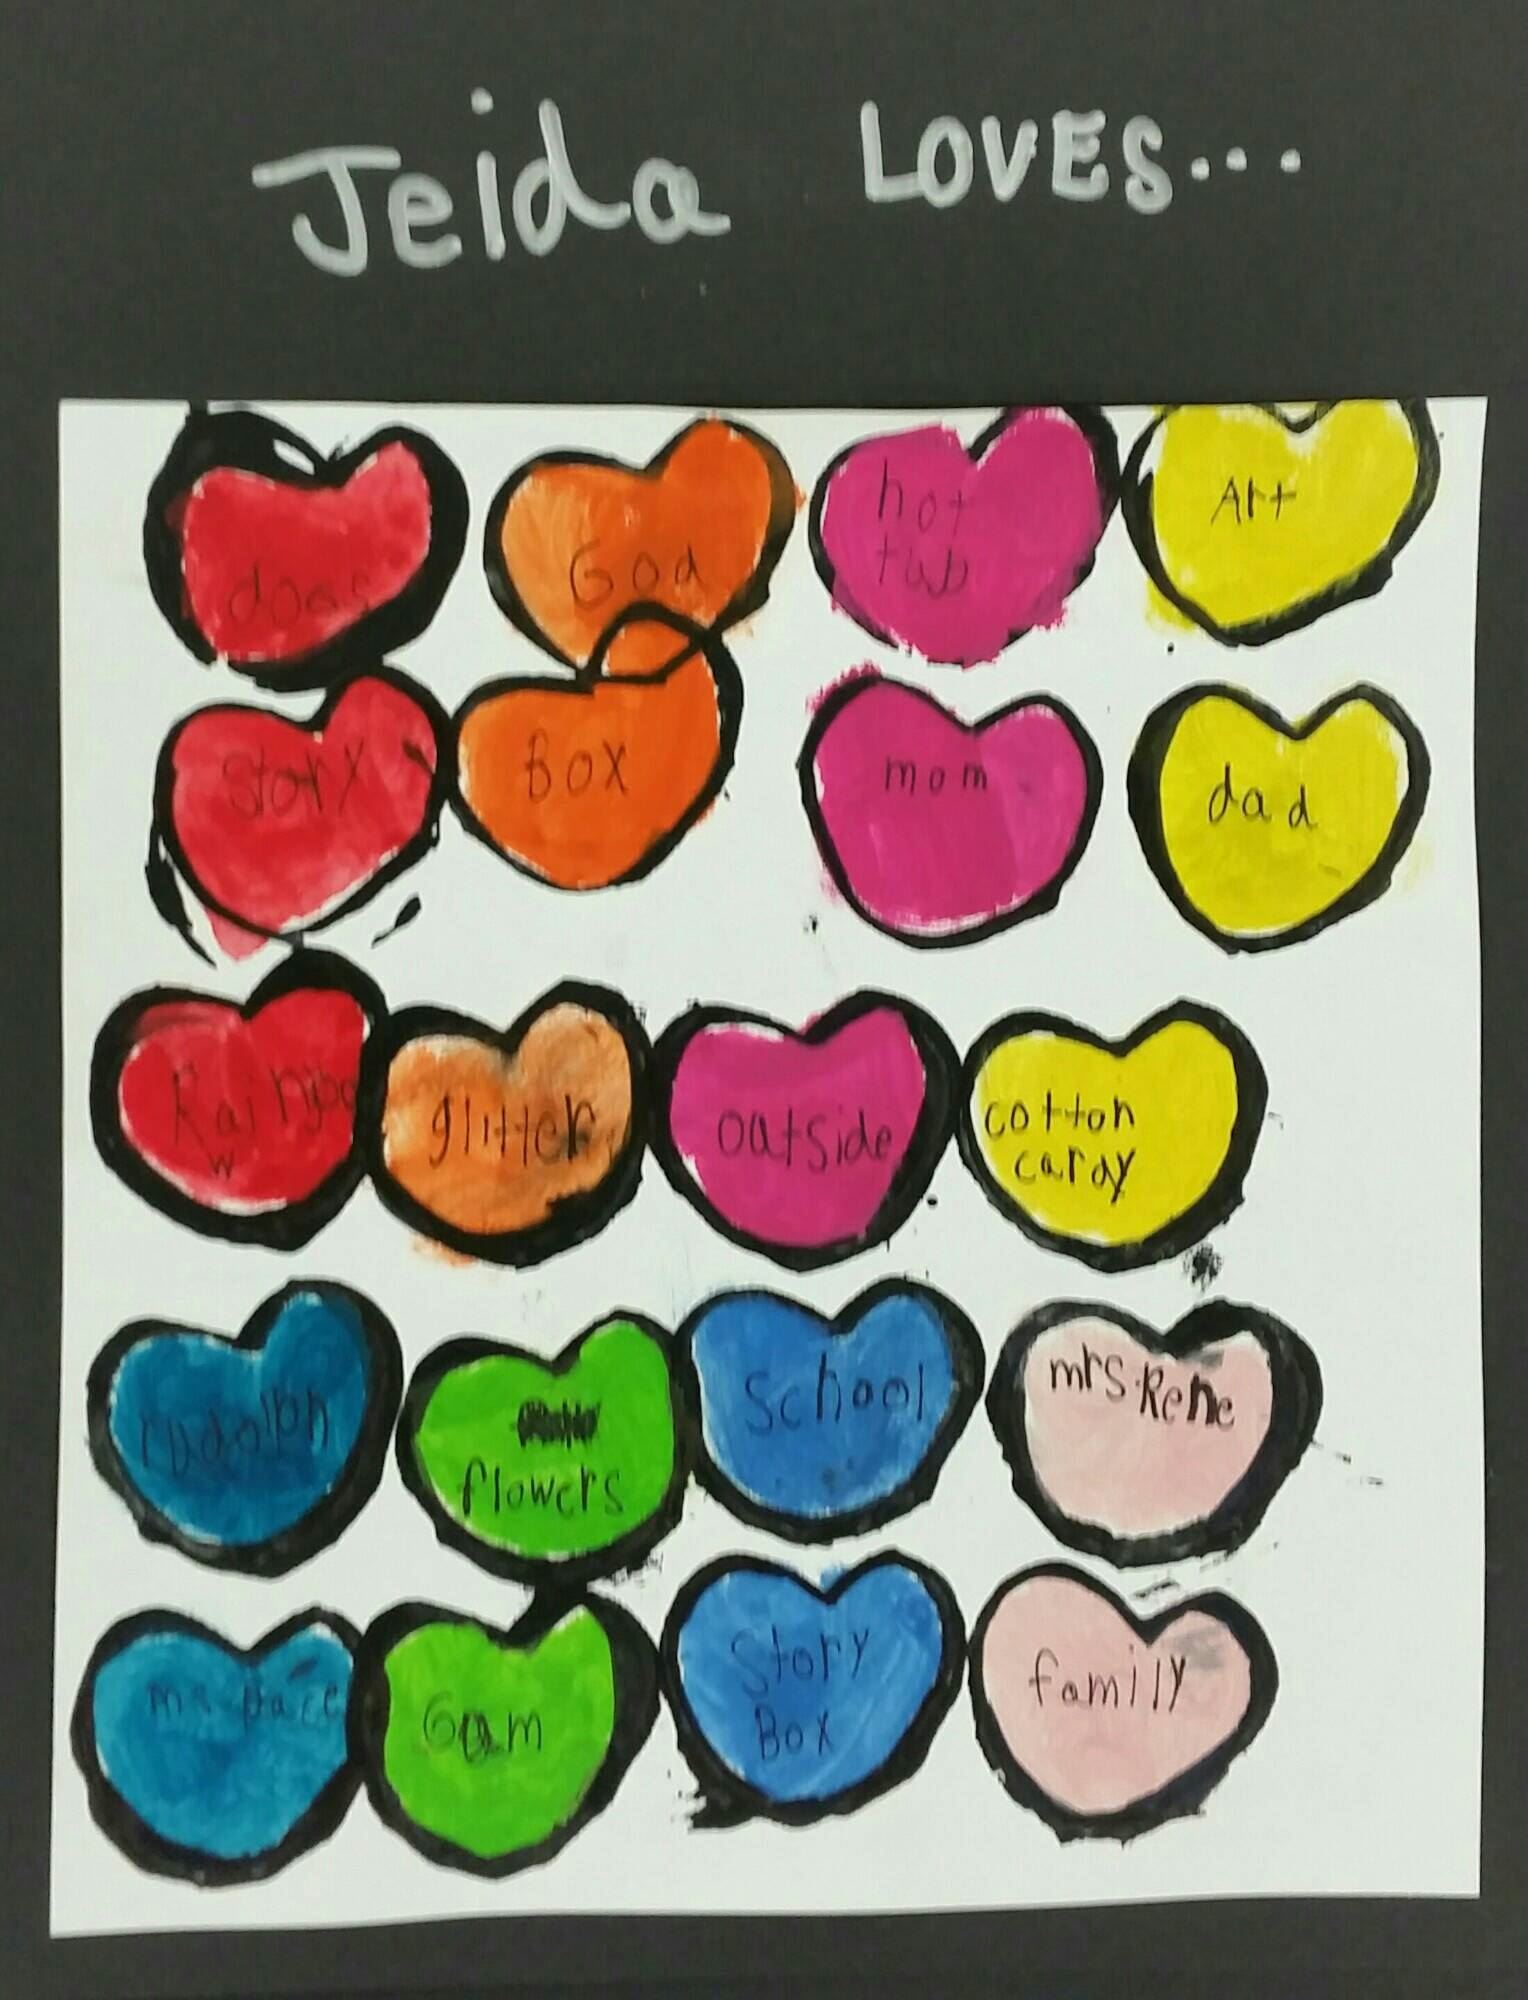 Jeida LOVES...
dogs
God
hot
tub
Art
story
Box
mom
dad
Rainbo
w
glitter
outside
cotton
candy
rudolph
flowers
School
mrs. Rene
ms. pace
Gum
Story
Box
family